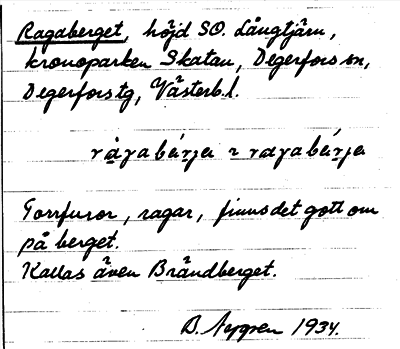 Ragaberget, höjd SO. Långtjärn,
kronoparken Skatan, Degerfors sn,
Degerfors tg, Västerb. l.
Torrfuror, ragar, finns det gott om
på berget.
Kallas även Brändberget.
B. Nygren 1934.